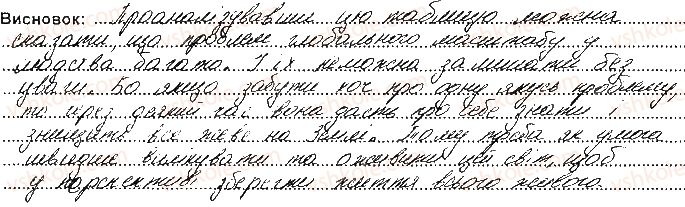 Висновок: Проаналізувавши цю таблицю можна
сказати, що проблем глобального масштабу у
людства багато. І їх неможна залишати без
уваги. Бо якщо забути хоч про одну якусь проблему,
то через деякий час вона дасть про себе знати і
знищить все живе на Землі. Тому треба як умога
швидше вилікувати та оживити цей світ, щоб
у перспективі зберегти життя всього живого.